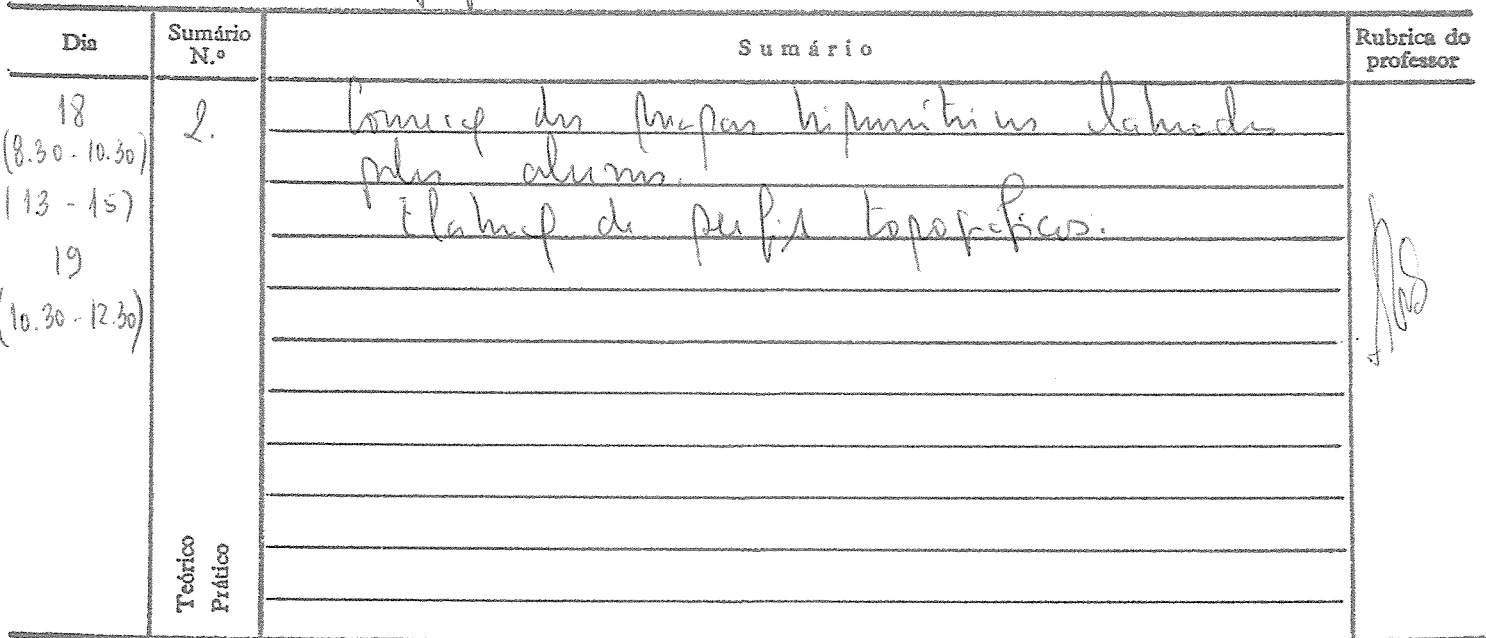 Dia
Sumário N.º
Sumário
Rubrica do professor
18
(8.30 - 10.30)
(13 - 15)
19
(10.30 - 12.30)
2.
Correcção dos mapas hipsométricos elaborados
pelos alunos.
Elaboração de perfis topográficos.
Teórico
Prático